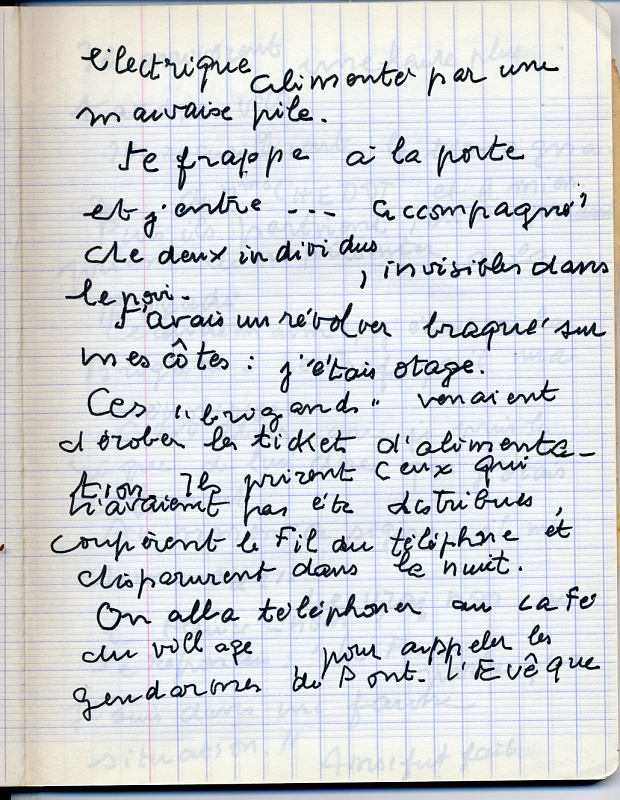 électrique alimenté par une
mauvaise pile.
Je frappe à la porte
et j'entre --- accompagné
de deux individus, invisibles dans
le noir.
J'avais un révolver braqué sur
mes côtes : j'étais otage.
Ces "brigands" venaient
dérober les tickets d'alimenta-
tion. Ils prirent ceux qui
n'avaient pas été distribués,
coupèrent le Fil du téléphone et
disparurent dans la nuit.
On alla téléphoner au café
du village pour appeler les
gendarmes de Pont-l'Evêque